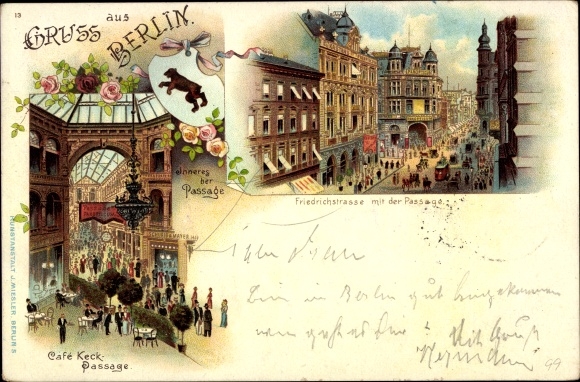 13
GRUSS aus BERLIN.
Inneres der Passage
Friedrichstrasse mit der Passage.
Café Keck-
Passage.
KUNSTANSTALT J. MIESLER, BERLIN S
Bin in Berlin gut angekommen
wie geht es Dir? Mit Gruß
99